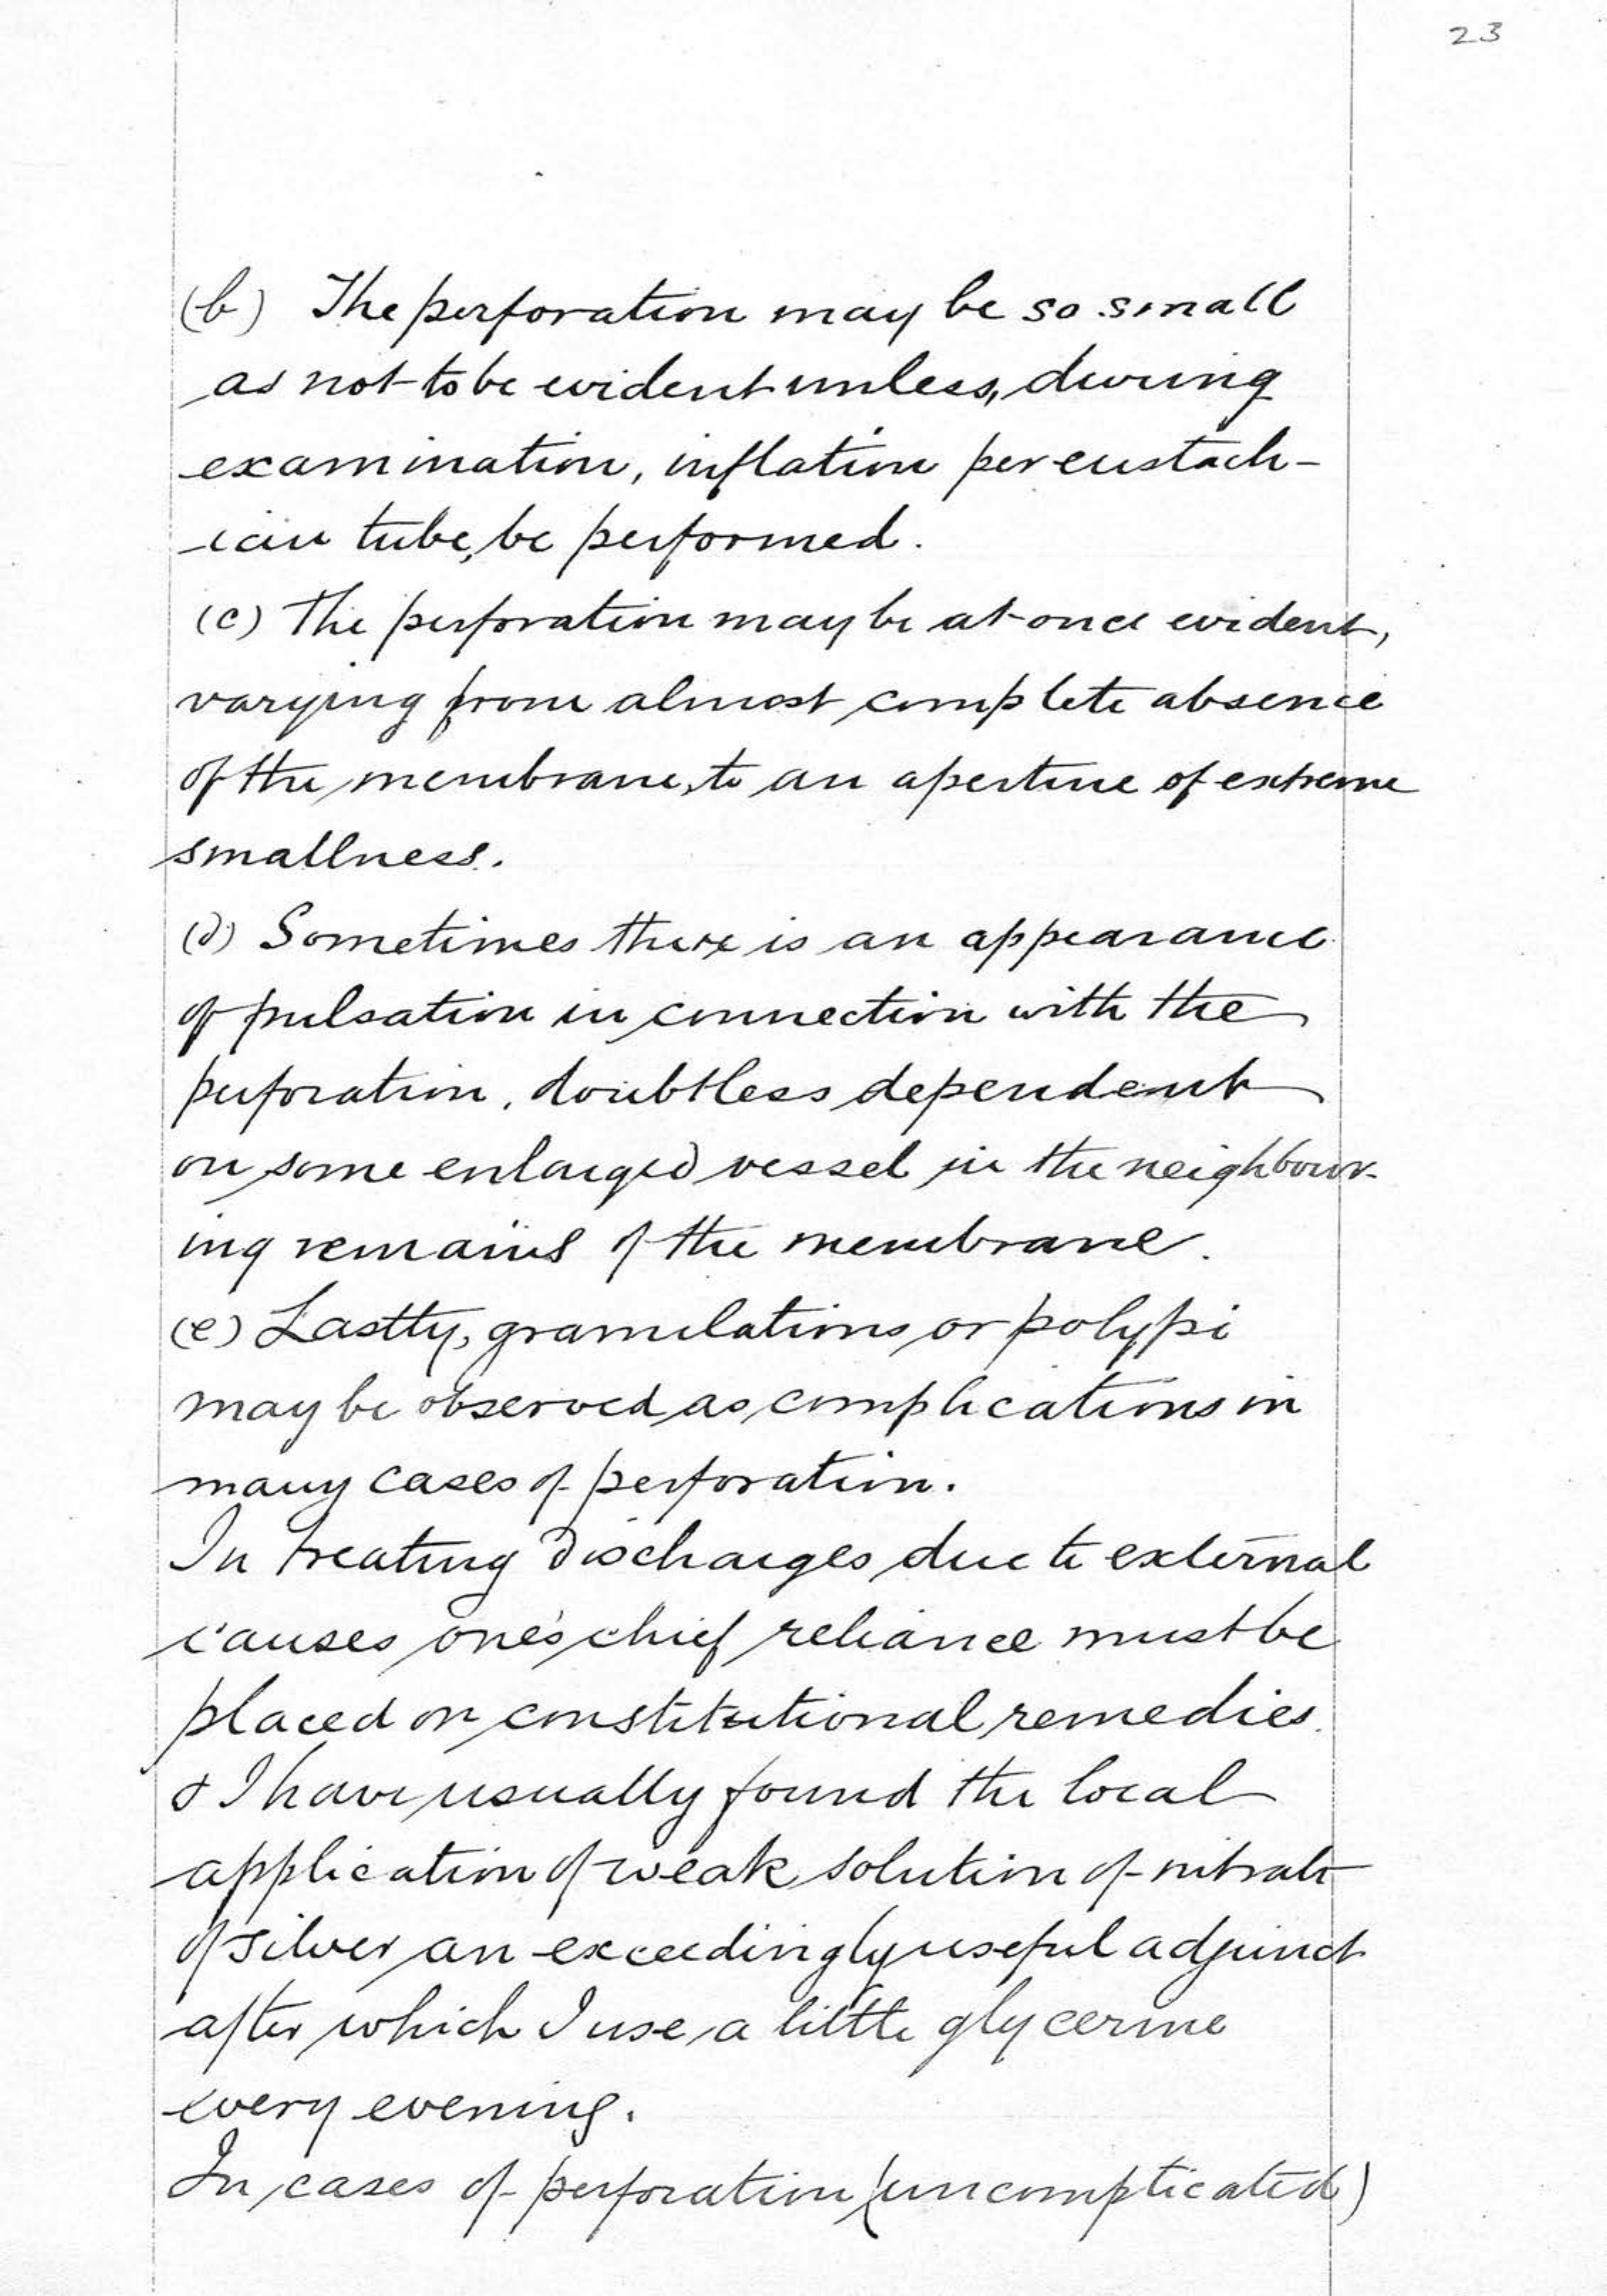 23
(b) The perforation may be so small
as not to be evident unless, during
examination, inflation per eustach-
-ian tube, be performed.
(c) The perforation may be at once evident,
varying from almost complete absence
of the membrane, to an aperture of extreme
smallness.
(d) Sometimes there is an appearance
of pulsation in connection with the
perforation, doubtless dependent
on some enlarged vessel in the neighbour-
ing remains of the membrane.
(e) Lastly, granulations or polypi
may be observed as complications in
many cases of perforation.
In treating discharges due to external
causes one's chief reliance must be
placed on constitutional remedies.
& I have usually found the local
application of weak solution of nitrate
of silver an exceedingly useful adjunct
after which I use a little glycerine
every evening.
In cases of perforation (uncomplicated)